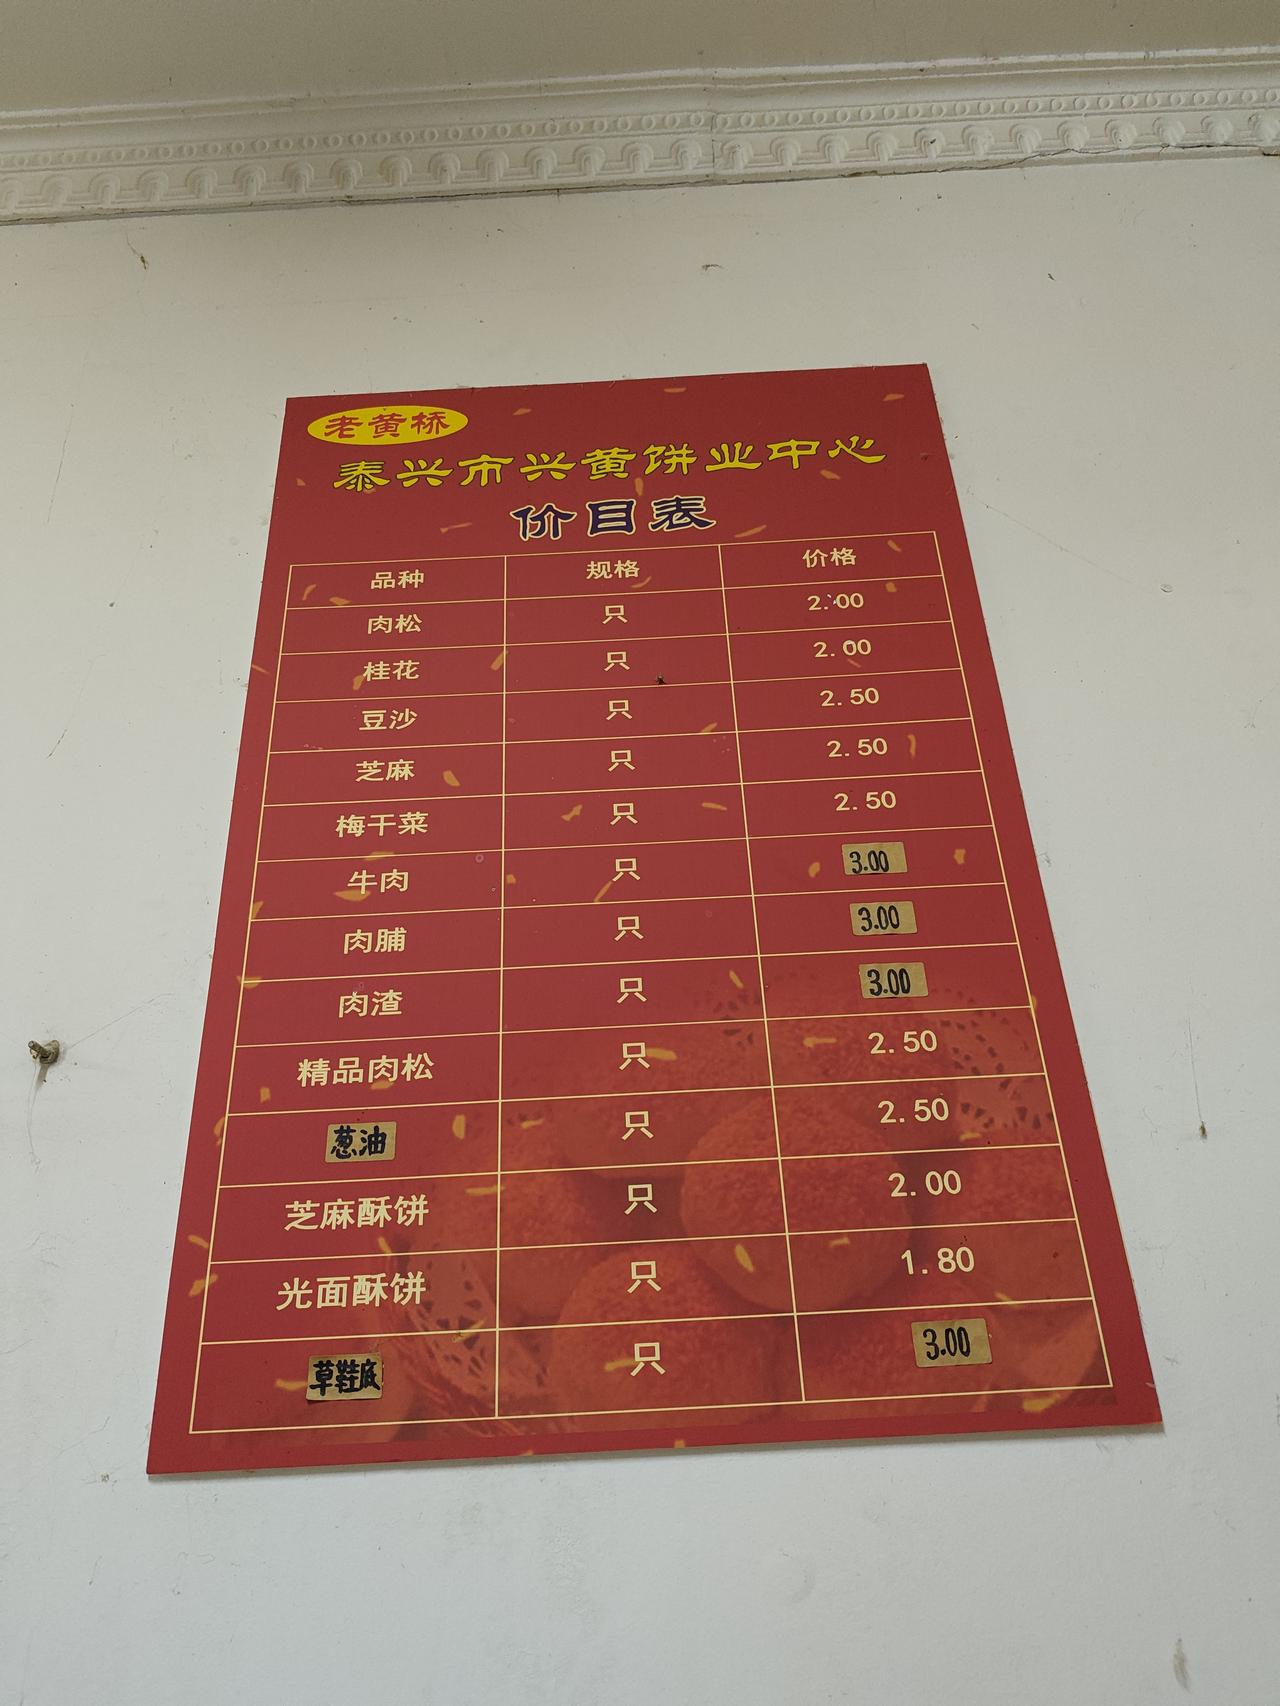 老黄桥
泰兴市兴黄饼业中心
价目表
品种 规格 价格
肉松 只 2.00
桂花 只 2.00
豆沙 只 2.50
芝麻 只 2.50
梅干菜 只 2.50
牛肉 只 3.00
肉脯 只 3.00
肉渣 只 3.00
精品肉松 只 2.50
葱油 只 2.50
芝麻酥饼 只 2.00
光面酥饼 只 1.80
草鞋底 只 3.00